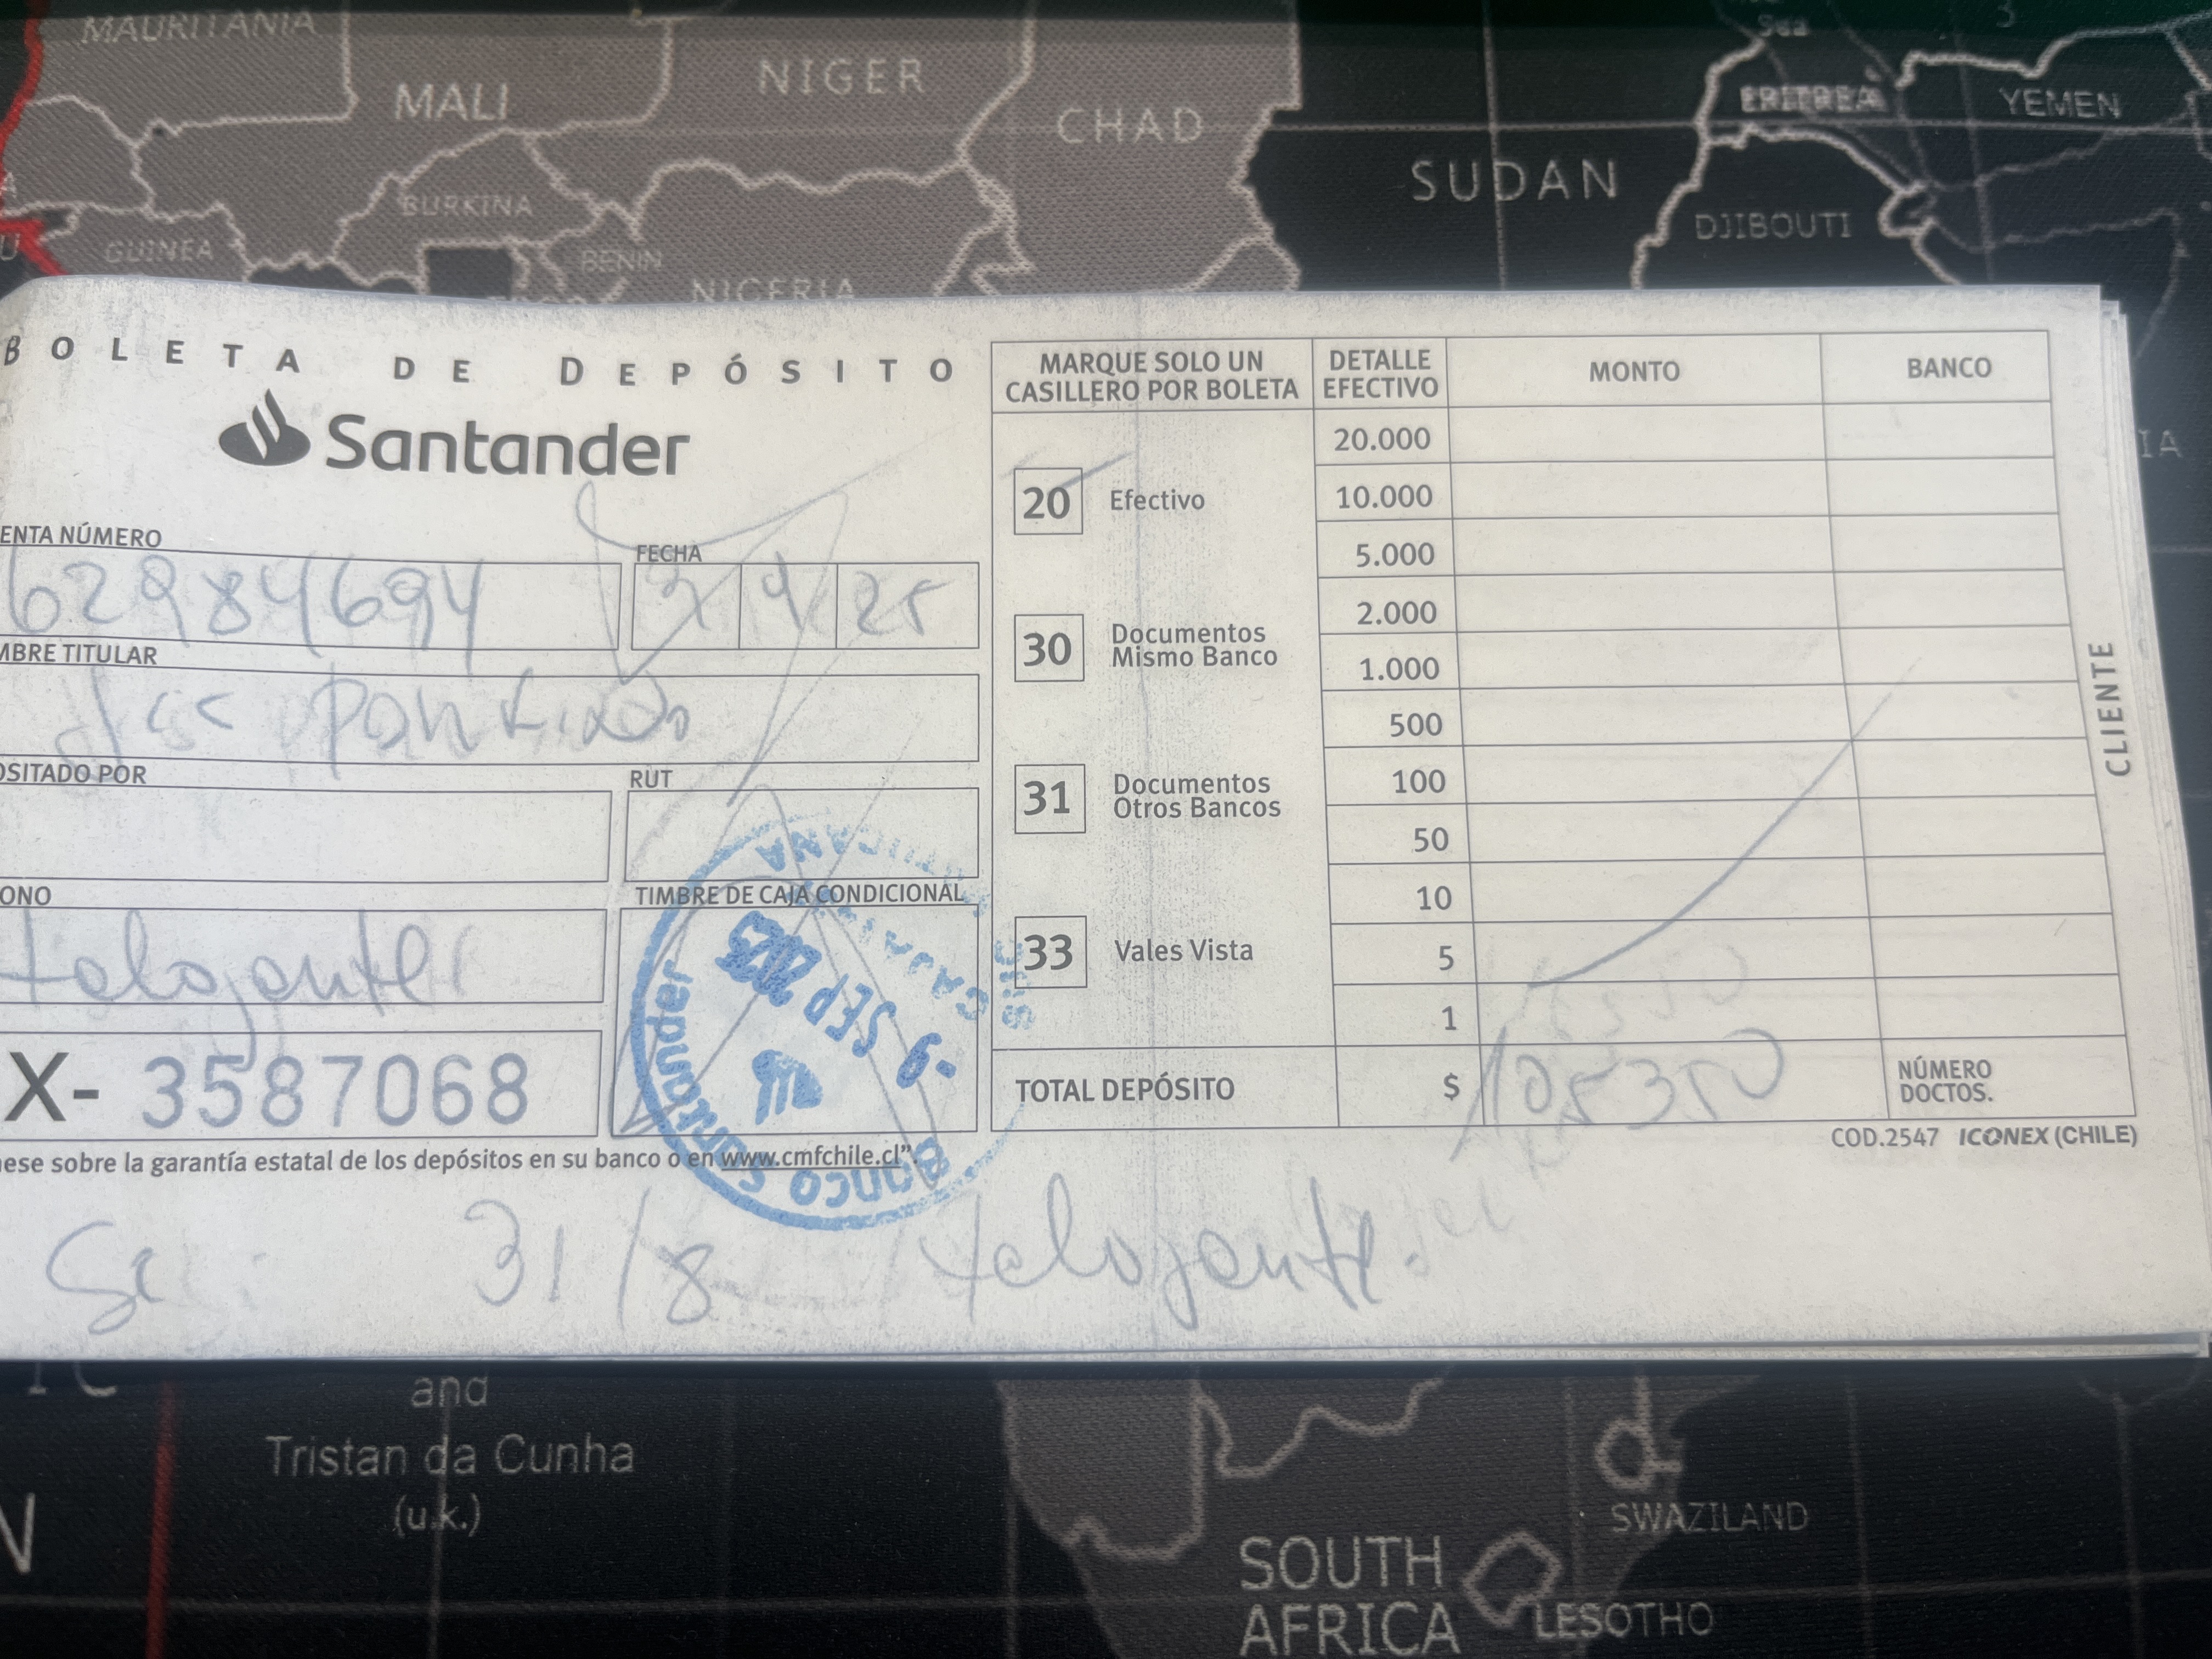 MAURITANIA
MALI
NIGER
CHAD
SUDAN
ERITREA
YEMEN
DJIBOUTI
BURKINA
GUINEA
BENIN
NIGERIA
BOLETA DE DEPÓSITO
Santander
ENTA NÚMERO
62984694
FECHA
9 9 25
MBRE TITULAR
OSITADO POR
RUT
ONO
TIMBRE DE CAJA CONDICIONAL
X- 3587068
Banco Santander
-9 SEP 2025
CAJA
ese sobre la garantía estatal de los depósitos en su banco o en www.cmfchile.cl".
MARQUE SOLO UN CASILLERO POR BOLETA
DETALLE EFECTIVO
MONTO
BANCO
20 Efectivo
30 Documentos Mismo Banco
31 Documentos Otros Bancos
33 Vales Vista
20.000
10.000
5.000
2.000
1.000
500
100
50
10
5
1
TOTAL DEPÓSITO $ 105350
NÚMERO DOCTOS.
CLIENTE
COD.2547 ICONEX (CHILE)
31/8
and
Tristan da Cunha
(u.k.)
SOUTH
AFRICA
SWAZILAND
LESOTHO